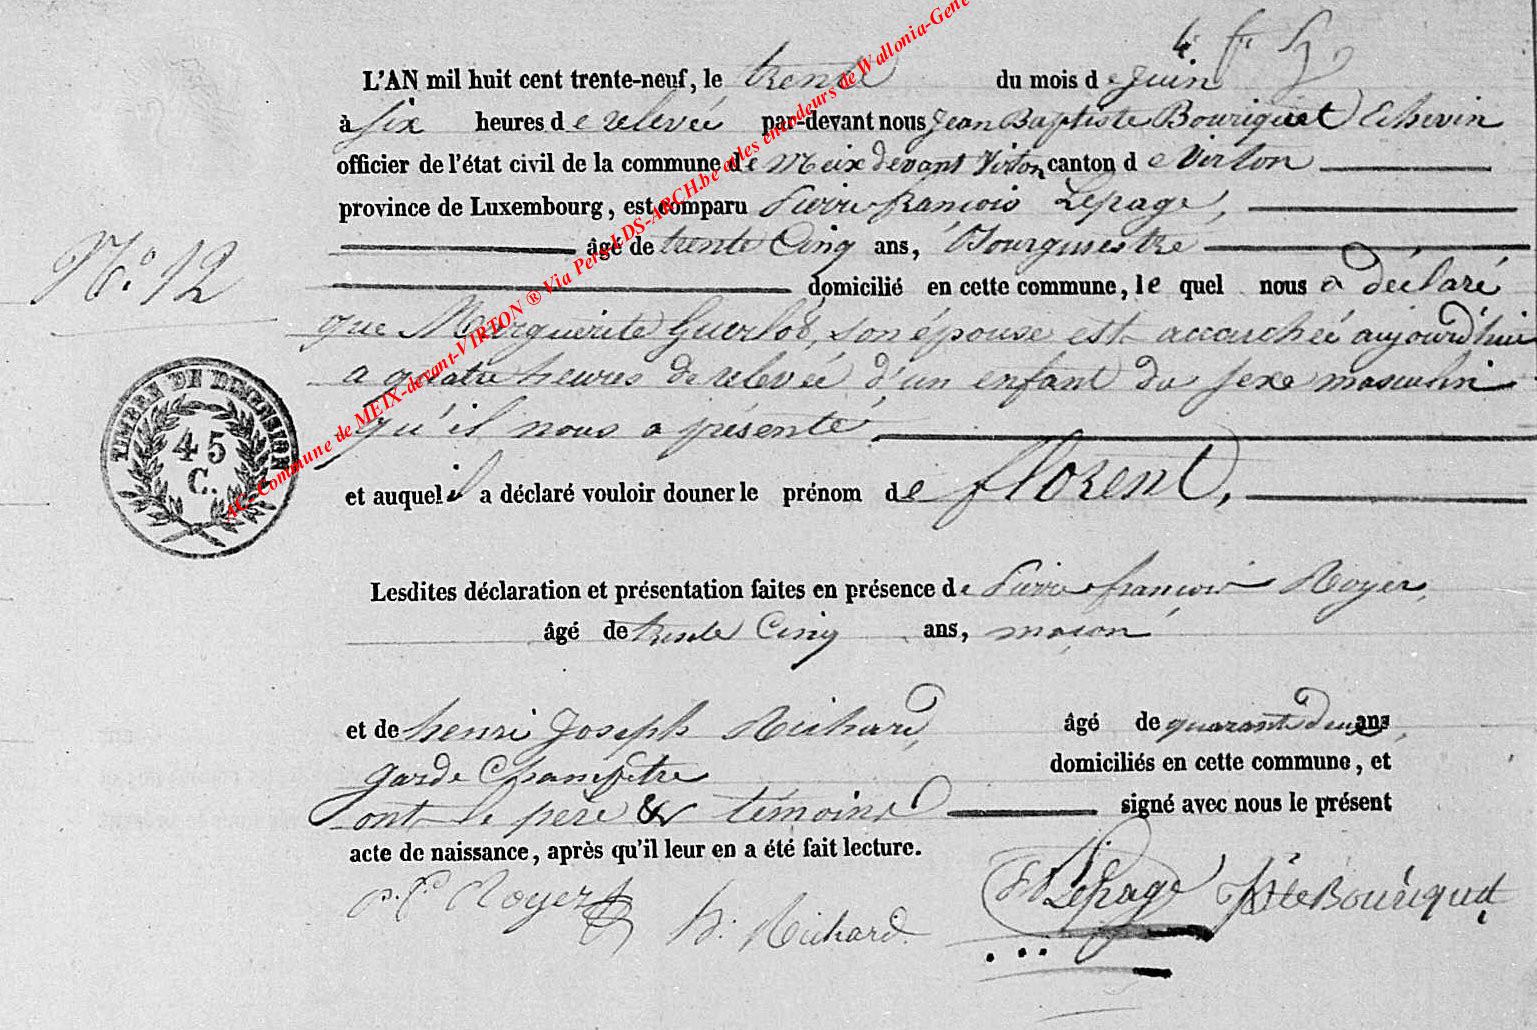 L'AN mil huit cent trente-neuf, le trente du mois de Juin
à Six heures de relevée par-devant nous Jean Baptiste Bouriquet Echevin
officier de l'état civil de la commune de Meix devant Virton canton de Virton
province de Luxembourg, est comparu Pierre françois Lepage,
âgé de trente Cinq ans, Bourgmestre
domicilié en cette commune, le quel nous a déclaré
N.° 12
que Marguerite Guerlot, son épouse est accouchée aujourd'hui
a quatre heures de relevée d'un enfant du sexe masculin
qu'il nous a présenté
et auquel il a déclaré vouloir donner le prénom de florent,
TIMBRE DE DIMENSION
45
C.
Lesdites déclaration et présentation faites en présence de Pierre françois Royer,
âgé de trente Cinq ans, maçon
et de henri Joseph Richard, âgé de quarante deux ans,
garde Champêtre domiciliés en cette commune, et
ont le père & témoins signé avec nous le présent
acte de naissance, après qu'il leur en a été fait lecture.
p. f. Royer h. Richard. Lepage JBte Bouriquet
AC. Commune de MEIX-devant-VIRTON ® Via Pero LDS-ARCH.be et les encodeurs de Wallonia-Gene